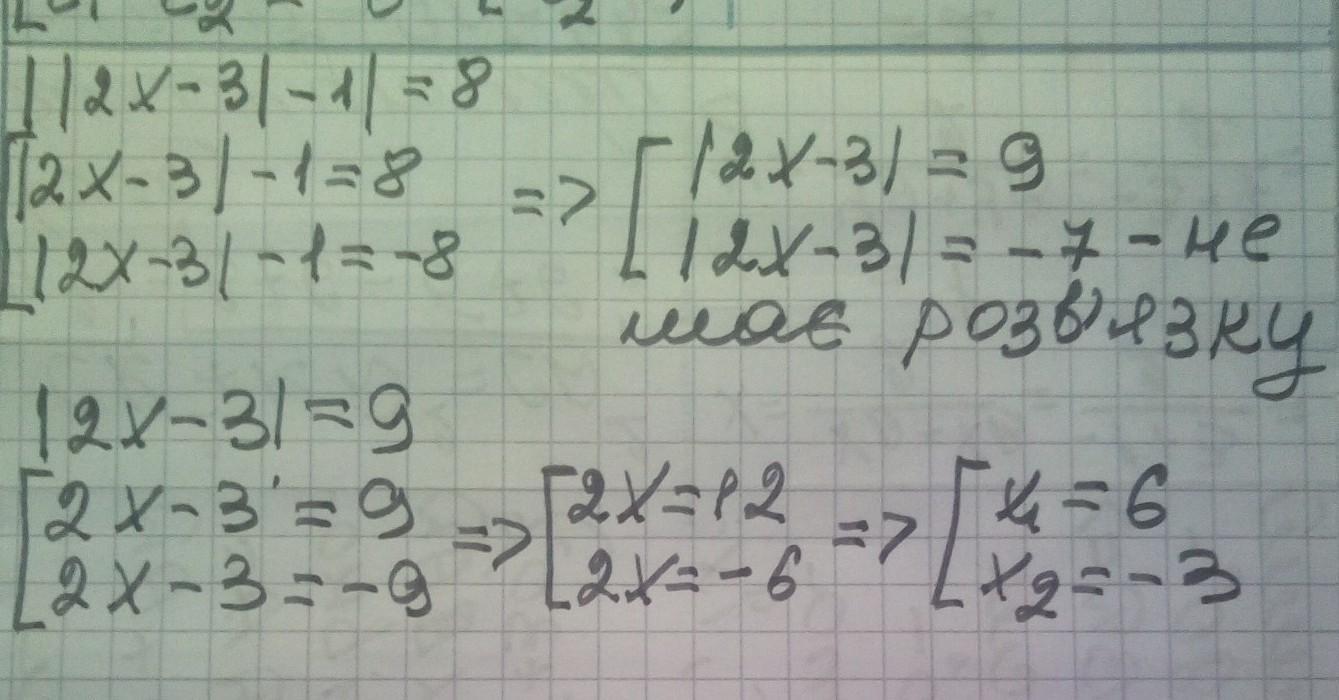 ||2x-3|-1|=8
[|2x-3|-1=8 => [|2x-3|=9
|2x-3|-1=-8 |2x-3|=-7-не
має розв'язку
|2x-3|=9
[2x-3=9 => [2x=12 => [x1=6
2x-3=-9 2x=-6 x2=-3